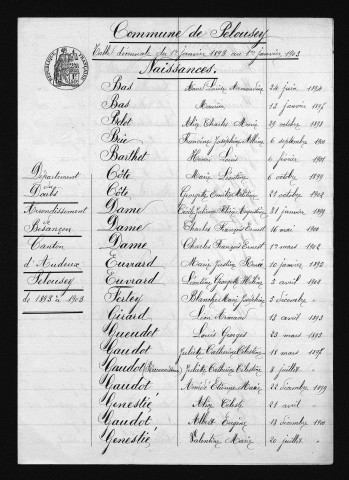 Commune de Pelousey
Table décennale du 1er janvier 1893 au 1er janvier 1903
Naissances.
Département
du
Doubs
Arrondissement de
Besançon
Canton
d'Audeux
Pelousey
de 1893 à 1903
Bas Marie Louise 24 juin 1894
Bas Maurice 12 janvier 1895
Belot Alix Charles Marie 29 octobre 1893
Bée Francine Joséphine 6 septembre 1900
Barthet Henri Louis 6 février 1901
Côte Marie Léontine 6 octobre 1899
Côte Georgette 21 octobre 1902
Dame 31 janvier 1899
Dame Charles François Ernest 16 mai 1900
Dame Charles François Ernest 17 mars 1902
Euvrard Marie Justine 10 janvier 1893
Euvrard Léontine 3 avril 1898
Ferley Blanche Marie Joséphine 2 décembre "
Girard Léon Armand 13 avril 1893
Gueudot Louis Georges 23 mars 1893
Gaudot Juliette Catherine Célestine 18 mars 1895
Gaudot Juliette Catherine Célestine 8 juillet "
Gaudot Aimée Etienne Marie 22 décembre 1899
Genestié Alix Céleste 21 avril "
Gaudot Albert Eugène 18 décembre 1900
Genestié Valentine Marie 20 juillet "